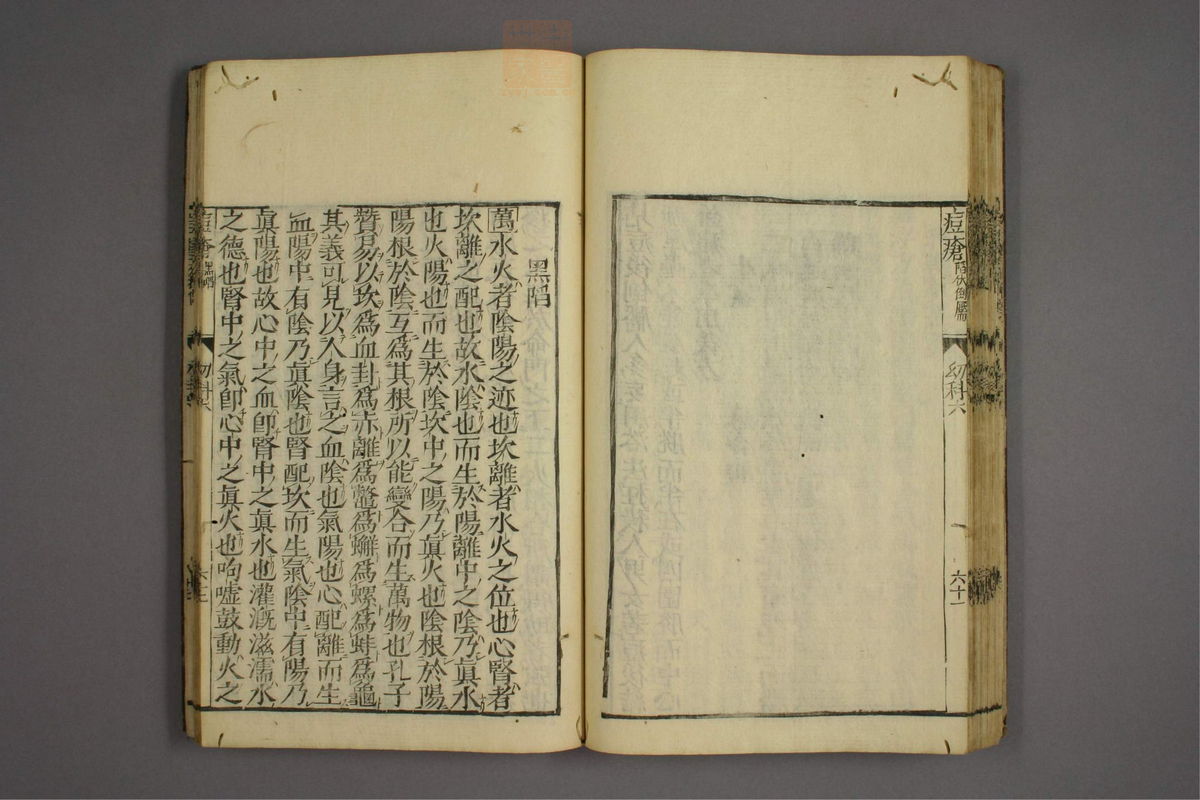 痘瘡 陷伏倒靨 幼科六 六十一
黑陷
萬水火者陰陽之迹也坎離者水火之位也心腎者
坎離之配也故水陰也而生於陽離中之陰乃眞水
也火陽也而生於陰坎中之陽乃眞火也陰根於陽
陽根於陰互爲其根所以能變合而生萬物也孔子
贊易以坎爲血卦爲赤離爲鱉爲蠏爲螺爲蚌爲龜
其義可見以人身言之血陰也氣陽也心配離而生
血陽中有陰乃眞陰也腎配坎而生氣陰中有陽乃
眞陽也故心中之血卽腎中之眞水也灌漑滋濡水
之德也腎中之氣卽心中之眞火也呴噓鼓動火之
痘瘡 黑陷 幼科六